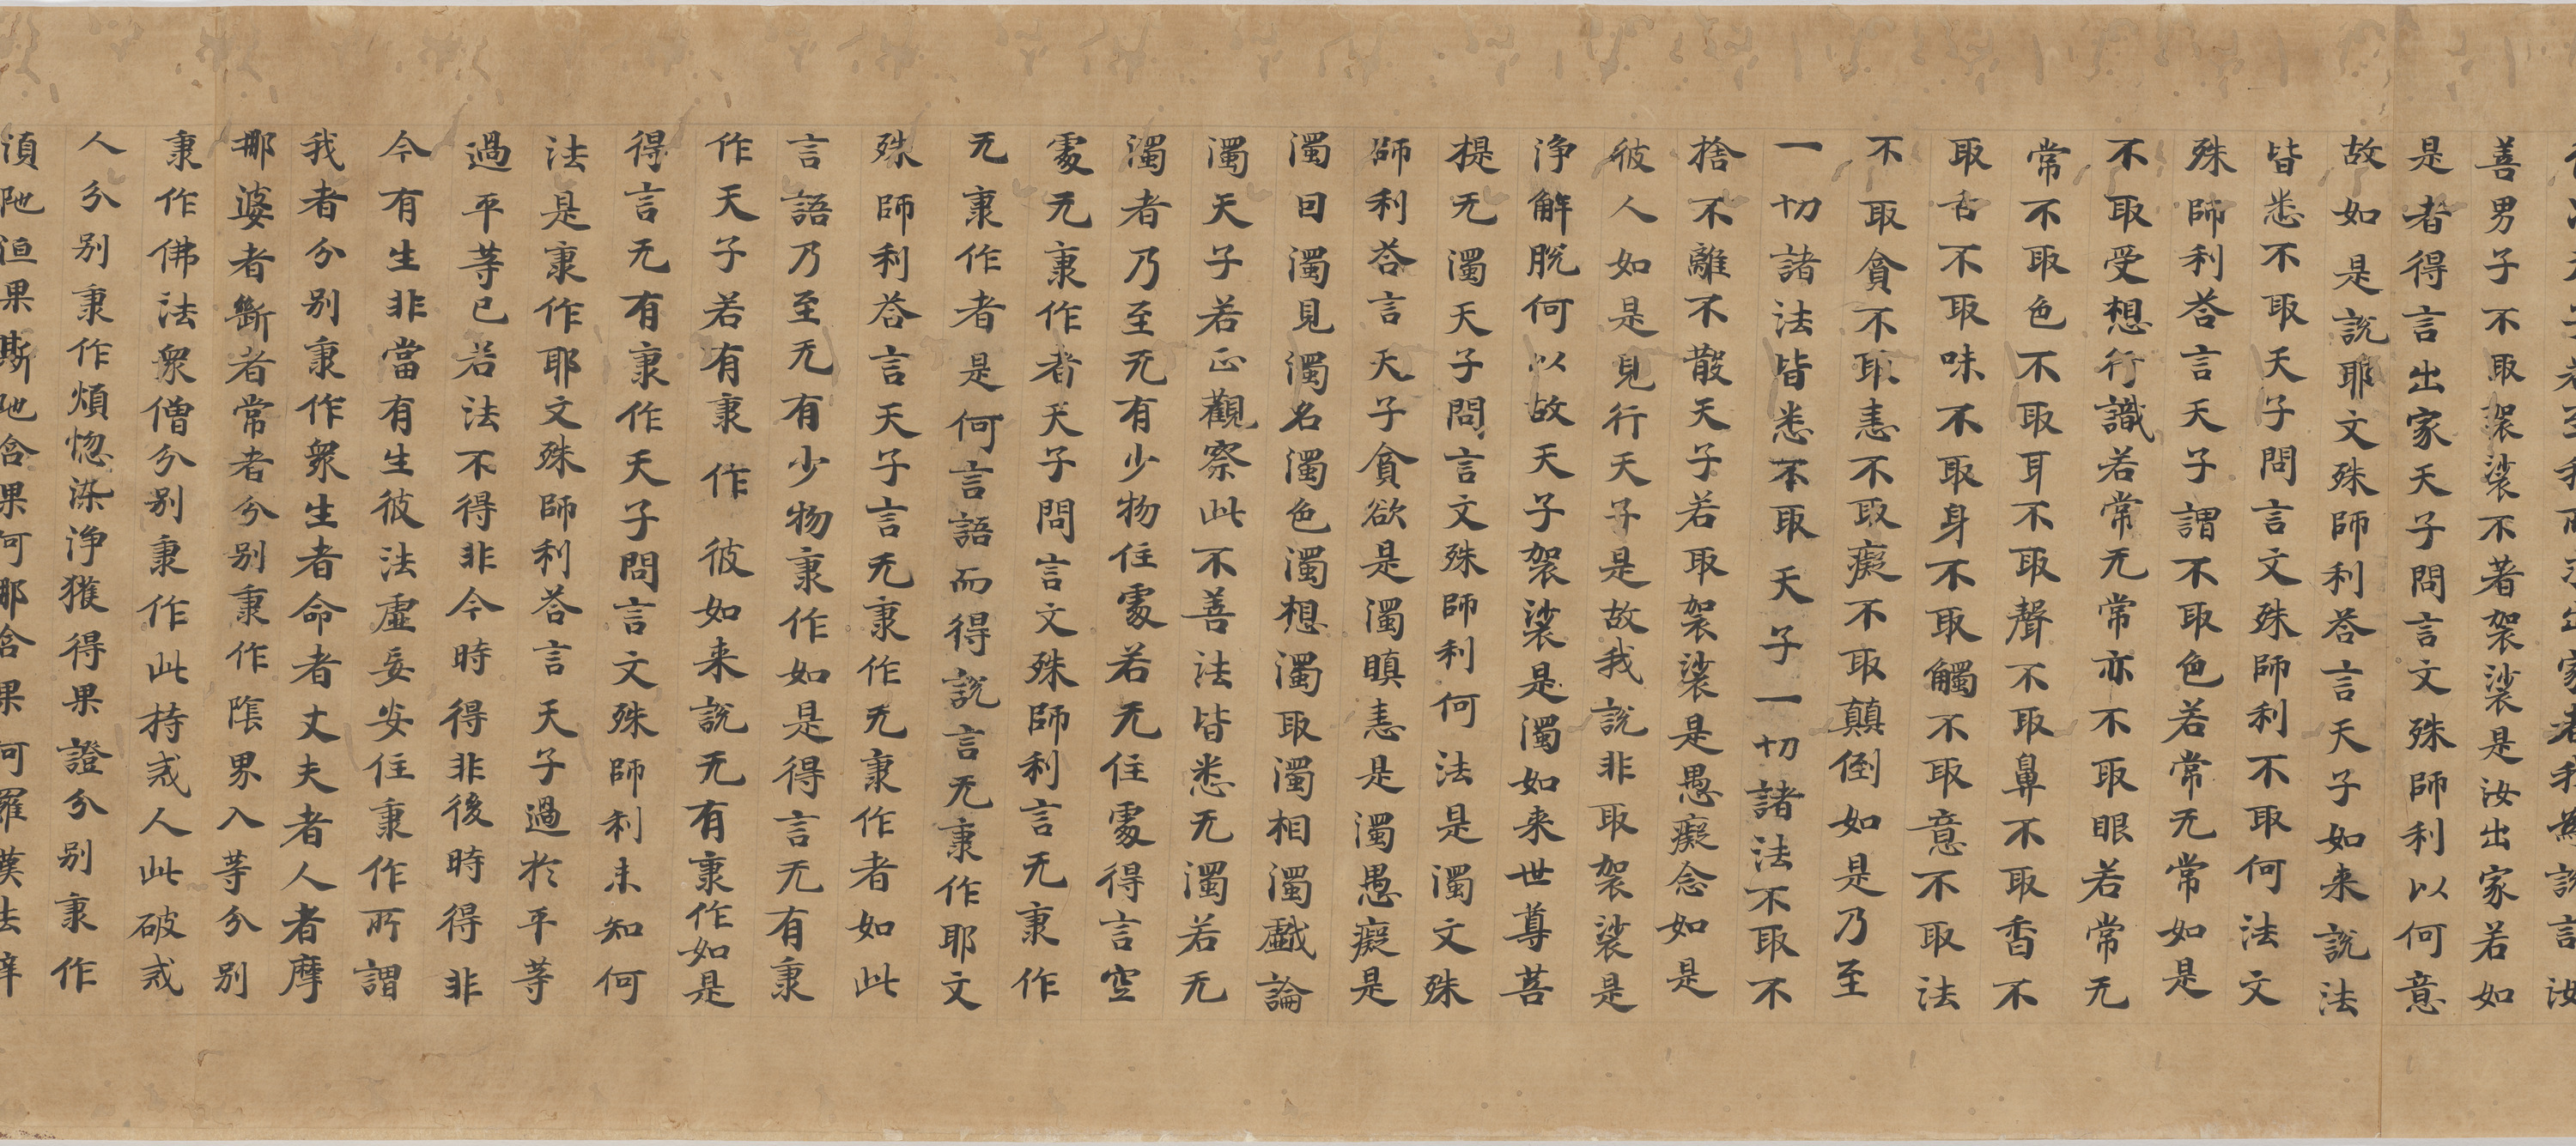 天子若至我所求出家者我為說言汝
善男子不取袈裟不著袈裟是汝出家若如
是者得言出家天子問言文殊師利以何意
故如是說耶文殊師利荅言天子如来說法
皆悉不取天子問言文殊師利不取何法文
殊師利荅言天子謂不取色若常无常如是
不取受想行識若常无常亦不取眼若常无
常不取色不取耳不取聲不取鼻不取香不
取舌不取味不取身不取觸不取意不取法
不取貪不取恚不取癡不取顛倒如是乃至
一切諸法皆悉不取天子一切諸法不取不
捨不離不散天子若取袈裟是愚癡念如是
彼人如是見行天子是故我說非取袈裟是
淨解脫何以故天子袈裟是濁如来世尊菩
提无濁天子問言文殊師利何法是濁文殊
師利荅言天子貪欲是濁瞋恚是濁愚癡是
濁因濁見濁名濁色濁想濁取濁相濁戲論
濁天子若正觀察此不善法皆悉无濁若无
濁者乃至无有少物住處若无住處得言空
處无稟作者天子問言文殊師利言无稟作
无稟作者是何言語而得說言无稟作耶文
殊師利荅言天子言无稟作无稟作者如此
言語乃至无有少物稟作如是得言无有稟
作天子若有稟作彼如来說无有稟作如是
得言无有稟作天子問言文殊師利未知何
法是稟作耶文殊師利荅言天子過於平等
過平等已若法不得非今時得非後時得非
今有生非當有生彼法虛妄安住稟作所謂
我者分別稟作衆生者命者丈夫者人者摩
那婆者斷者常者分別稟作陰界入等分別
稟作佛法衆僧分別稟作此持戒人此破戒
人分別稟作煩惚染淨獲得果證分別稟作
湏陁洹果斯陁含果阿那含果阿羅漢法辟